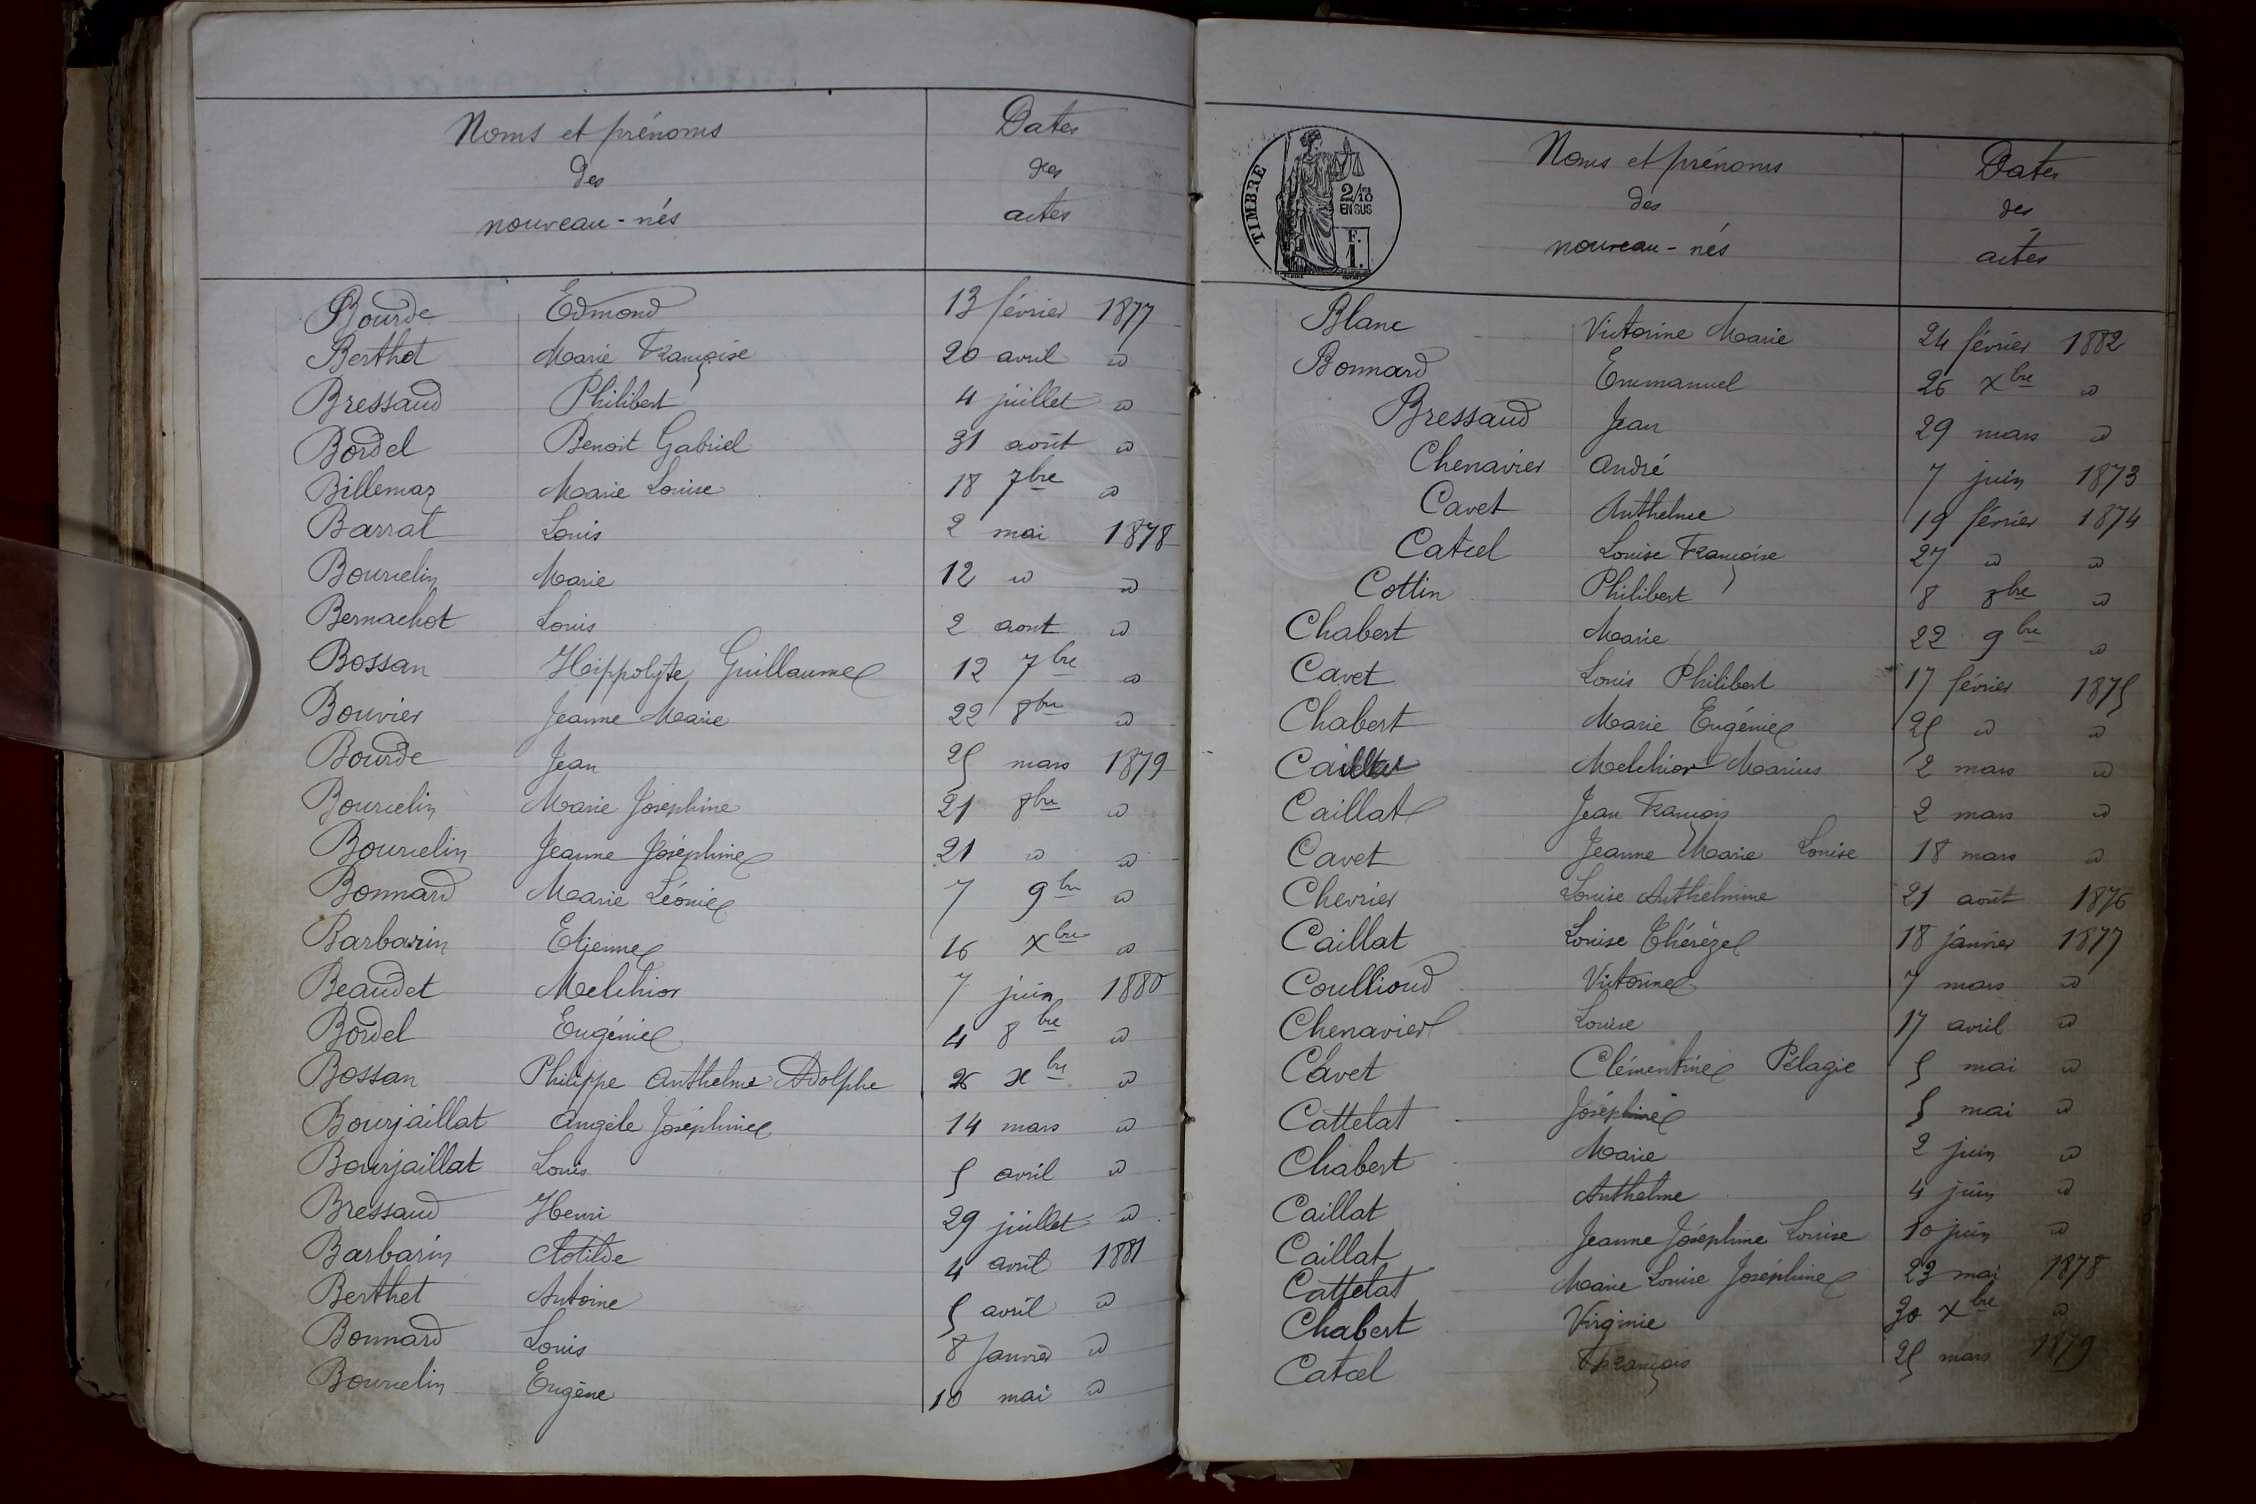 Noms et prénoms
des
nouveau-nés
Dates
des
actes
Bourde Edmond 13 février 1877
Berthet Marie Françoise 20 avril "
Bressaud Philibert 4 juillet "
Bordel Benoit Gabriel 31 août "
Billemaz Marie Louise 18 7bre "
Barrat Louis 2 mai 1878
Bourcelin Marie 12 " "
Bernachot Louis 2 aout "
Bossan Hippolyte Guillaume 12 7bre "
Bouvier Jeanne Marie 22 8bre "
Bourde Jean 25 mars 1879
Bourcelin Marie Joséphine 21 8bre "
Bourcelin Jeanne Joséphine 21 " "
Bonnard Marie Léonie 7 9bre "
Barbarin Etienne 16 Xbre "
Beaudet Melchior 7 juin 1880
Bordel Eugénie 4 8bre "
Bossan Philippe Anthelme Adolphe 26 Xbre "
Bourjaillat Angèle Joséphine 14 mars "
Bourjaillat Louis 5 avril "
Bressaud Henri 29 juillet "
Barbarin Clotilde 4 août 1881
Berthet Antoine 5 avril "
Bonnard Louis 8 Janvier "
Bourcelin Eugène 10 mai "
TIMBRE
2/10
EN SUS
F.
1.
Noms et prénoms
des
nouveau-nés
Dates
des
actes
Blanc Victorine Marie 24 février 1882
Bonnard Emmanuel 26 Xbre "
Bressaud Jean 29 mars "
Chenavier André 7 juin 1873
Cavet Anthelme 19 février 1874
Catcel Louise Françoise 27 " "
Cottin Philibert 8 8bre "
Chabert Marie 22 9bre "
Cavet Louis Philibert 17 février 1875
Chabert Marie Eugénie 25 " "
Melchior Marius 2 mars "
Caillat Jean François 2 mars "
Cavet Jeanne Marie Louise 18 mars "
Chevrier Louise Anthelmine 21 août 1876
Caillat Louise Thérèze 18 janvier 1877
Coullioud Victorine 7 mars "
Chenavier Louise 17 avril "
Cavet Clémentine Pélagie 5 mai "
Cattelat Joséphine 5 mai "
Chabert Marie 2 juin "
Caillat Anthelme 4 juin "
Caillat Jeanne Joséphine Louise 10 juin "
Cattelat Marie Louise Joséphine 23 mai 1878
Chabert Virginie 30 Xbre "
Catcel François 25 mars 1879